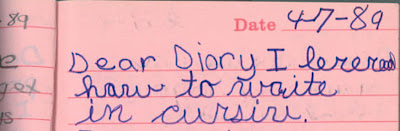 -89
Date 4-7-89
Dear Diory I lereread
haw to wraite
in cursirv.